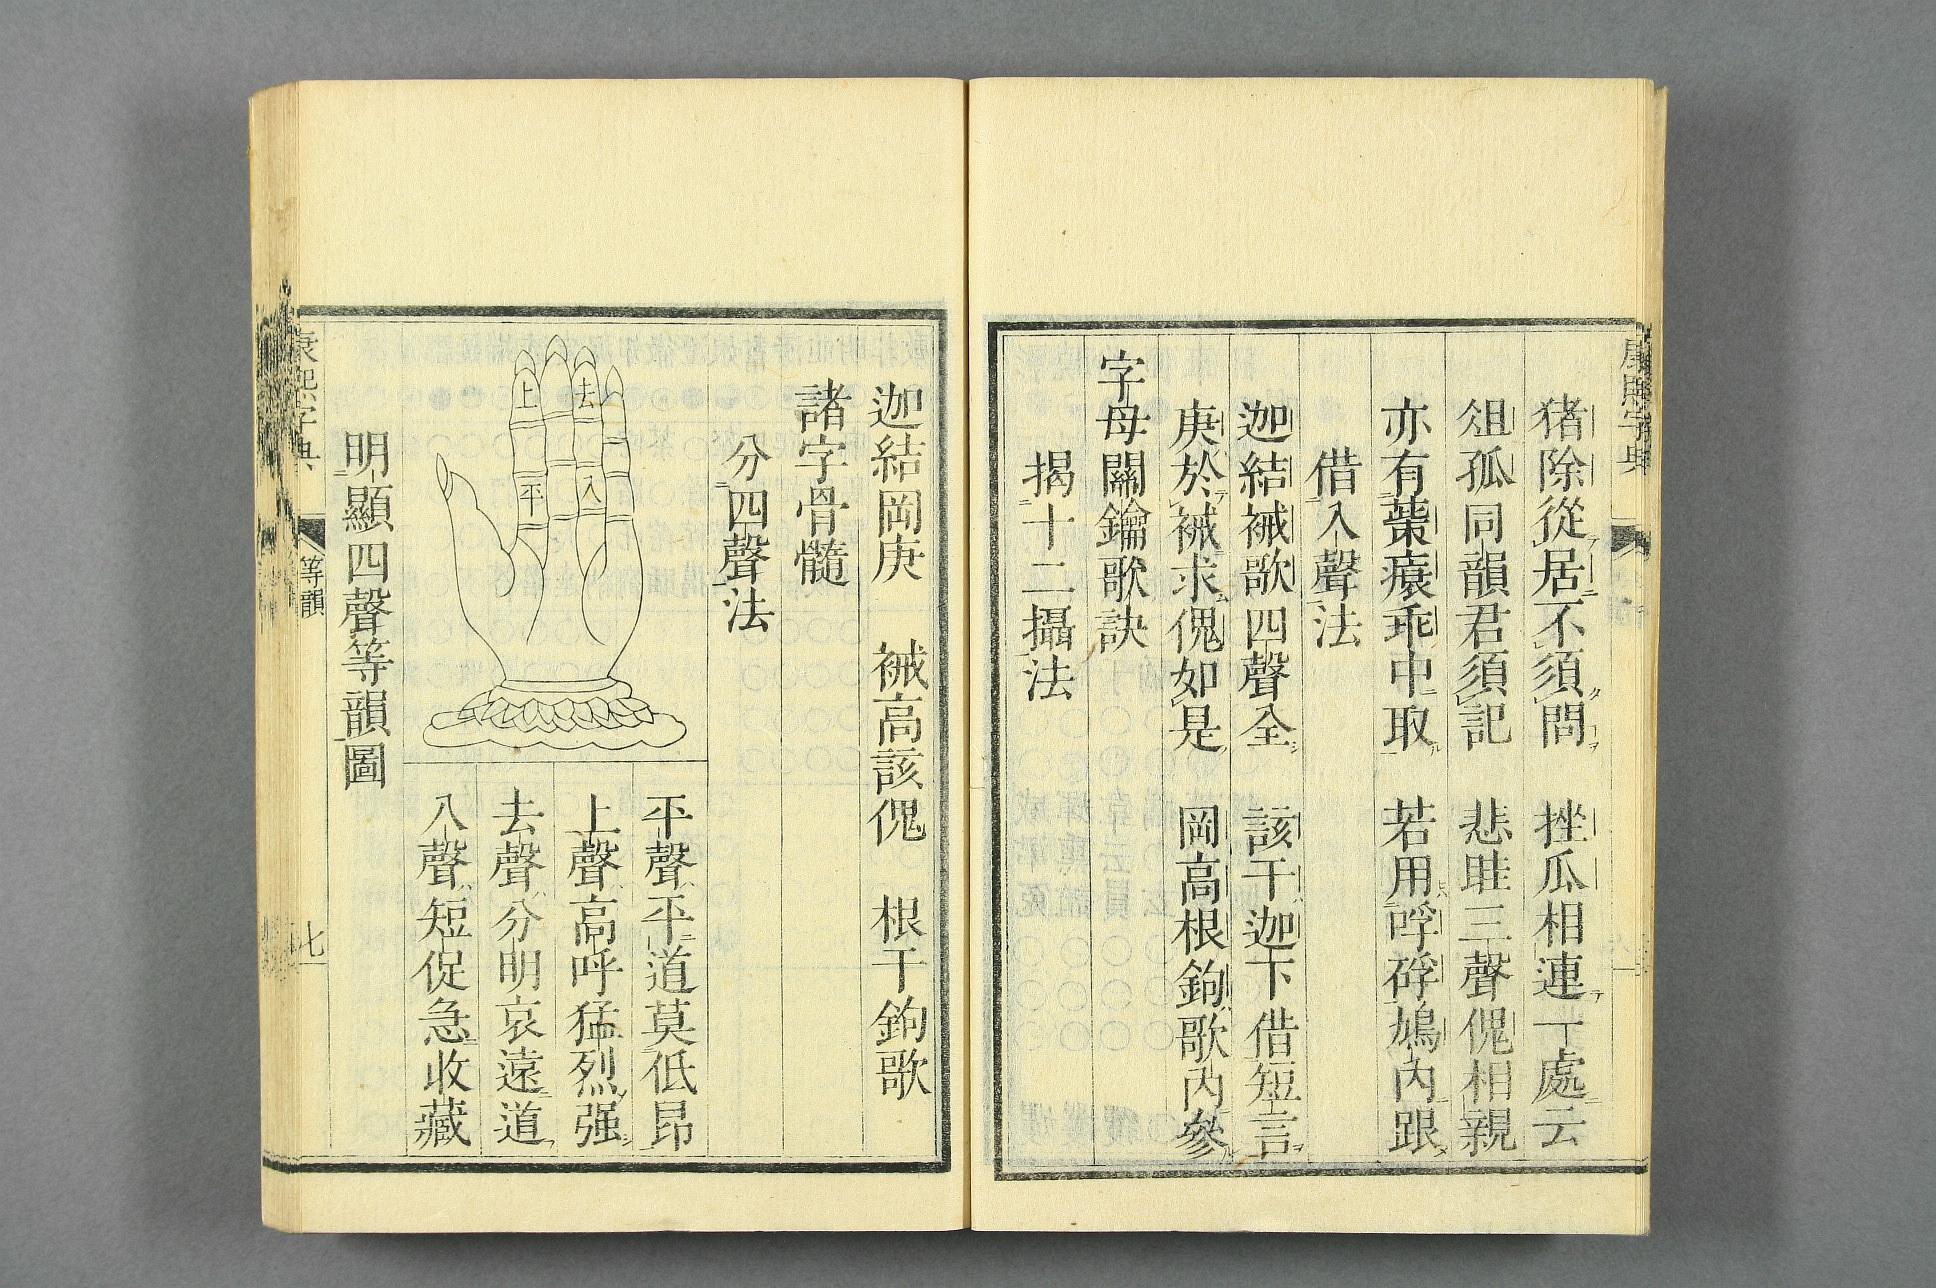 康熙字典
猪除從居不須問　挫瓜相連一處云
俎孤同韻君須記　悲眭三聲傀相親
亦有葉瘝乖中取　若用呼碎鳩內跟
借入聲法
迦結裓歌四聲全　該干迦下借短言
庚於裓求傀如是　岡高根鉤歌內參
字母關鑰歌訣
揭十二攝法
迦結岡庚　裓高該傀　根干鉤歌
諸字骨髓
分四聲法
上
去
平
入
平聲平道莫低昂
上聲高呼猛烈强
去聲分明哀遠道
入聲短促急收藏
明顯四聲等韻圖
康熙字典
等韻
七